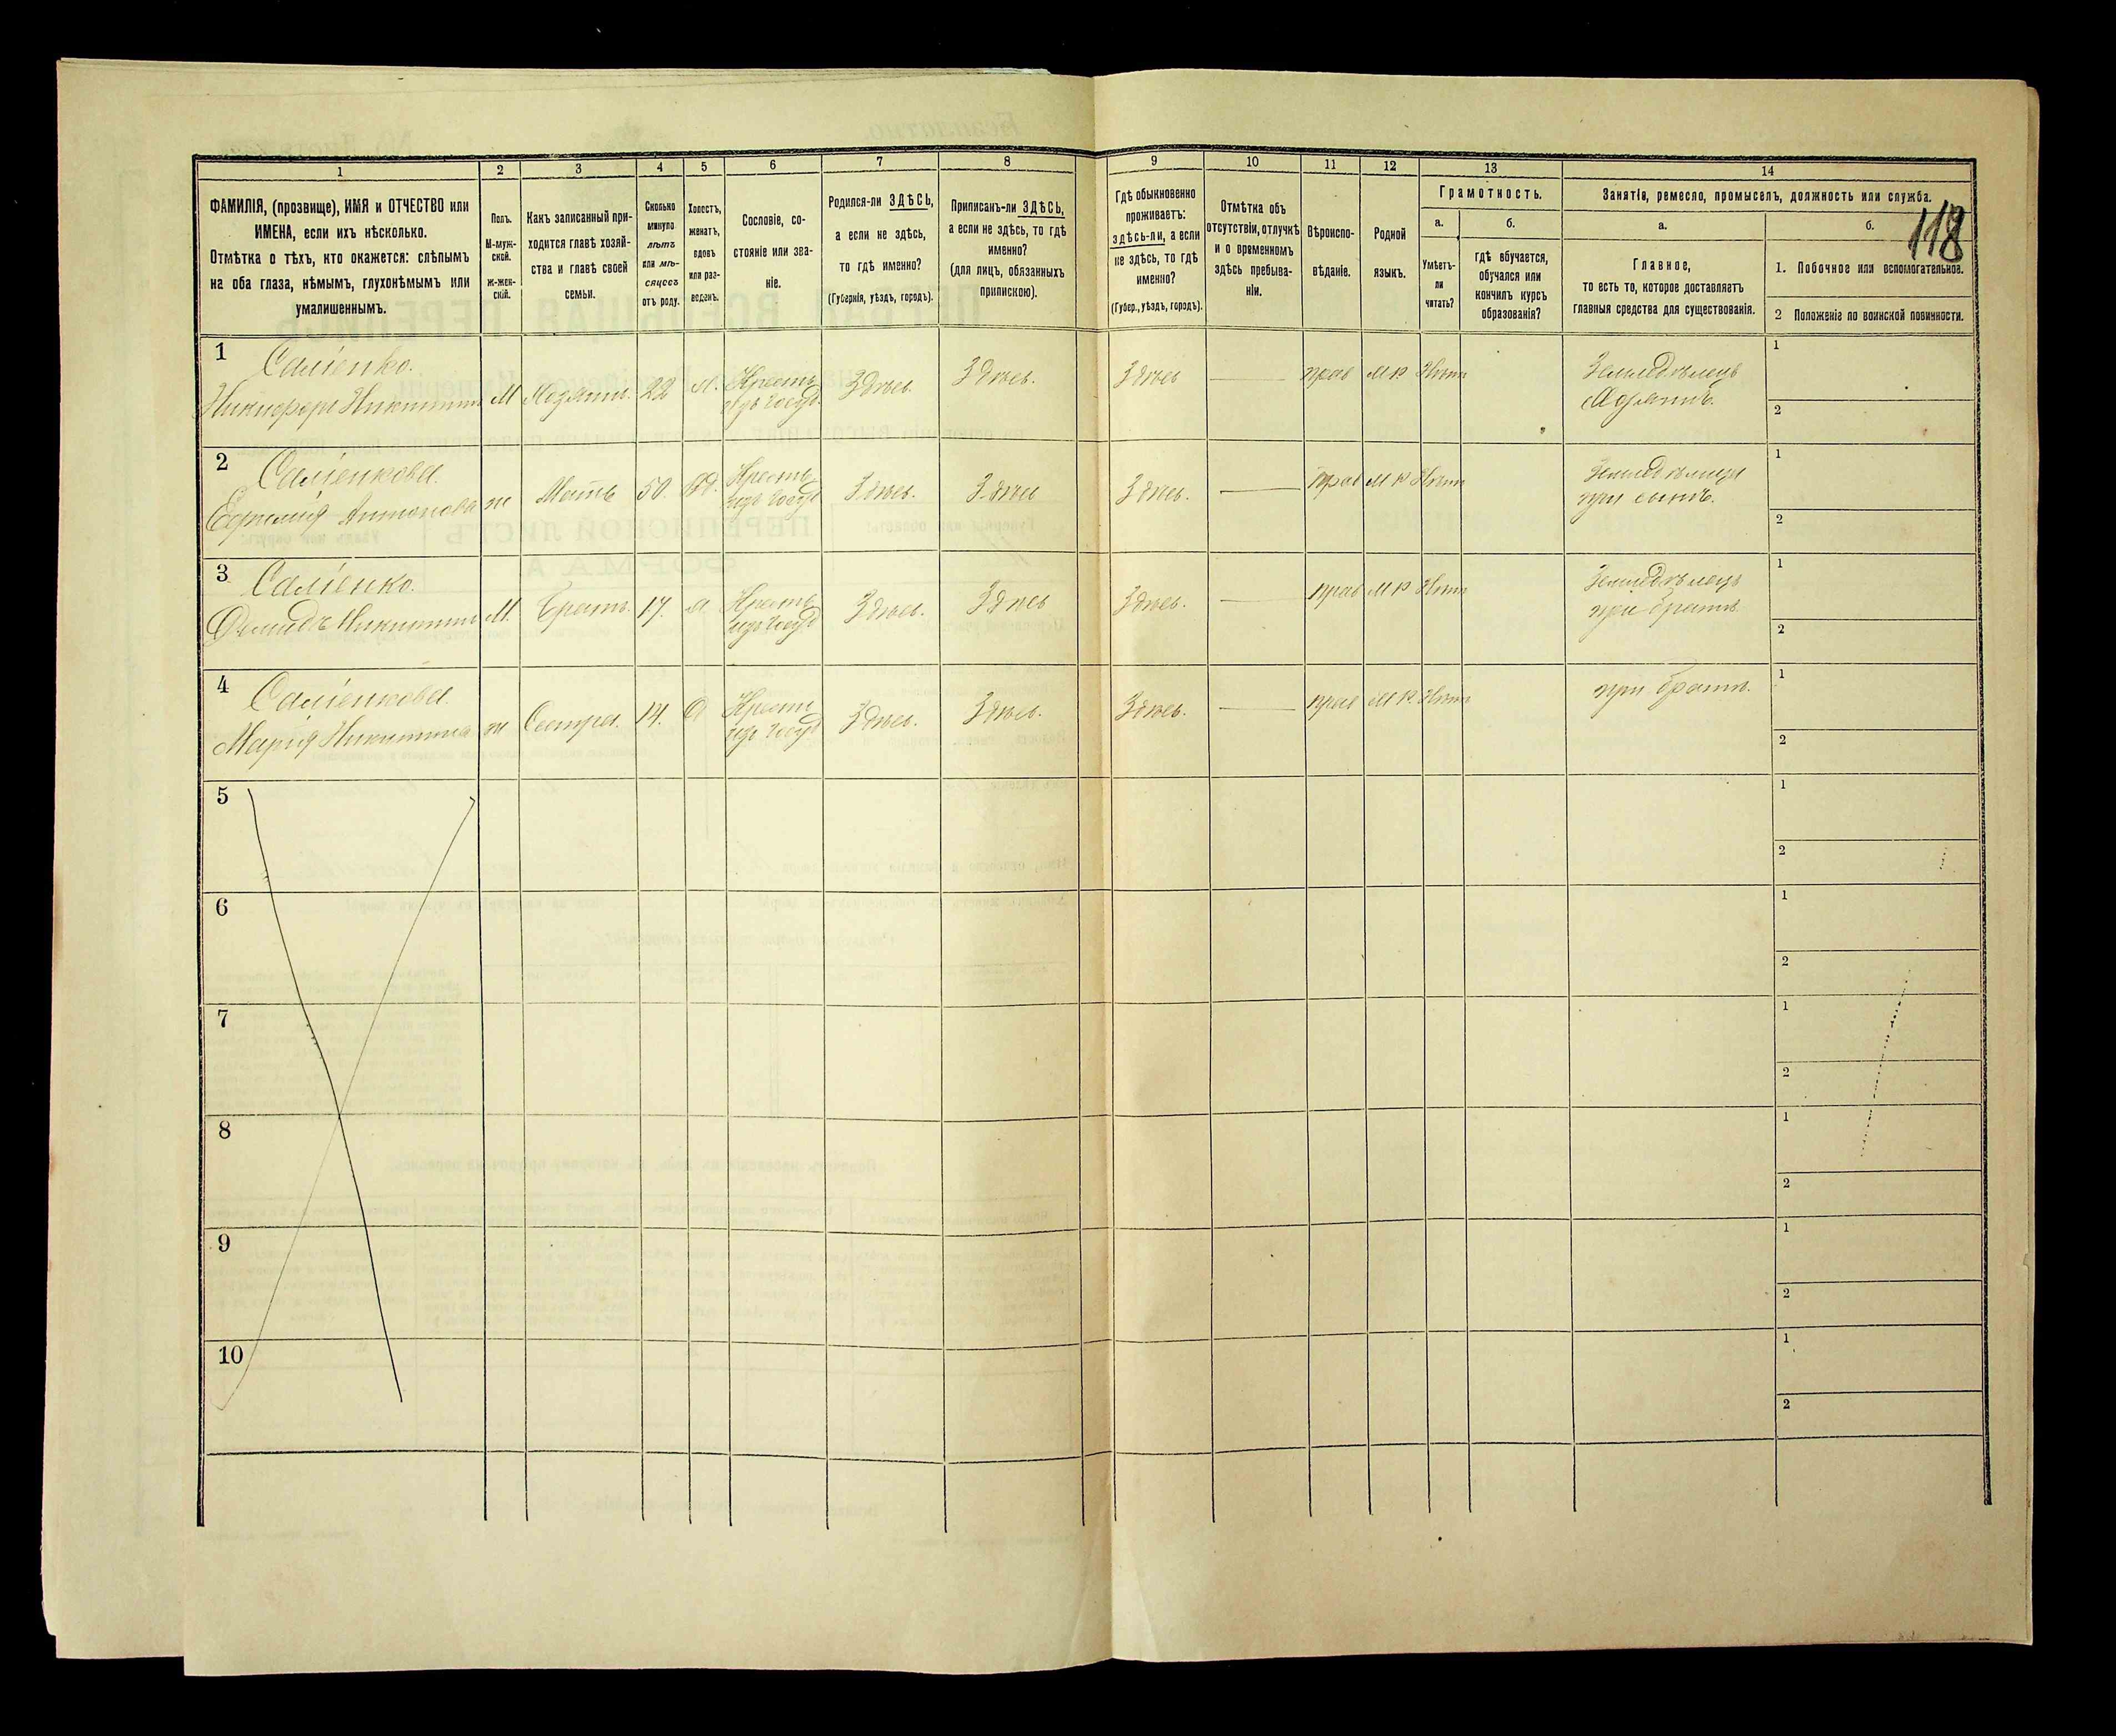 1 2 3 4 5 6 7 8 9 10 11 12 13 14
ФАМИЛІЯ, (прозвище), ИМЯ и ОТЧЕСТВО или
ИМЕНА, если ихъ нѣсколько.
Отмѣтка о тѣхъ, кто окажется: слѣпымъ
на оба глаза, нѣмымъ, глухонѣмымъ или
умалишеннымъ.
Полъ.
М-муж-
ской.
ж-жен-
скій.
Какъ записанный при-
ходится главѣ хозяй-
ства и главѣ своей
семьи.
Сколько
минуло
лѣтъ
или мѣ-
сяцевъ
отъ роду.
Холостъ,
женатъ,
вдовъ
или раз-
веденъ.
Сословіе, со-
стояніе или зва-
ніе.
Родился-ли ЗДѢСЬ,
а если не здѣсь,
то гдѣ именно?
(Губернія, уѣздъ, городъ).
Приписанъ-ли ЗДѢСЬ,
а если не здѣсь, то гдѣ
именно?
(для лицъ, обязанныхъ
припискою).
Гдѣ обыкновенно
проживаетъ:
здѣсь-ли, а если
не здѣсь, то гдѣ
именно?
(Губер., уѣздъ, городъ).
Отмѣтка объ
отсутствіи, отлучкѣ
и о временномъ
здѣсь пребыва-
ніи.
Вѣроиспо-
вѣданіе.
Родной
языкъ.
Грамотность.
а.
Умѣетъ-
ли
читать?
б.
гдѣ обучается,
обучался или
кончилъ курсъ
образованія?
Занятіе, ремесло, промыселъ, должность или служба.
а.
Главное,
то есть то, которое доставляетъ
главныя средства для существованія.
б.
118
1. Побочное или вспомогательное.
2 Положеніе по воинской повинности.
1 Саліенко.
Никифоръ Никитинъ М Хозяинъ. 22 х. Крестъ изъ госуд. Здѣсь. Здѣсь. Здѣсь прав М Р Нѣтъ Земледѣлецъ Хозяинъ. 1
2
2 Саліенкова.
Ефимія Антонова ж Мать 50. вд. Крестъ изъ госуд Здѣсь. Здѣсь Здѣсь. прав М Р Нѣтъ при сынѣ. 1
2
3 Саліенко.
Демидъ Никитинъ М. Братъ. 17. х. Крестъ изъ госуд Здѣсь. Здѣсь Здѣсь. прав М Р Нѣтъ Земледѣлецъ при братѣ 1
2
4 Саліенкова
Марія Никитина ж Сестра. 14. Д Крестъ изъ госуд Здѣсь. Здѣсь. Здѣсь. прав М Р. Нѣтъ при братѣ. 1
2
5 1
2
6 1
2
7 1
2
8 1
2
9 1
2
10 1
2